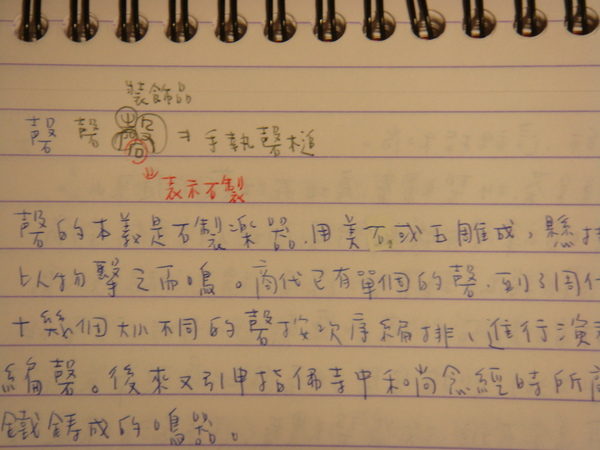 裝飾品
磬 磬 磬 ⇒ 手執磬槌
表示石製
磬的本義是石製樂器.用美石或玉雕成,懸掛
以物擊之而鳴。商代已有單個的磬.到了周代
十幾個大小不同的磬按次序編排、進行演奏
編磬。後來又引伸指佛寺中和尚念經時所
鐵鑄成的鳴器。